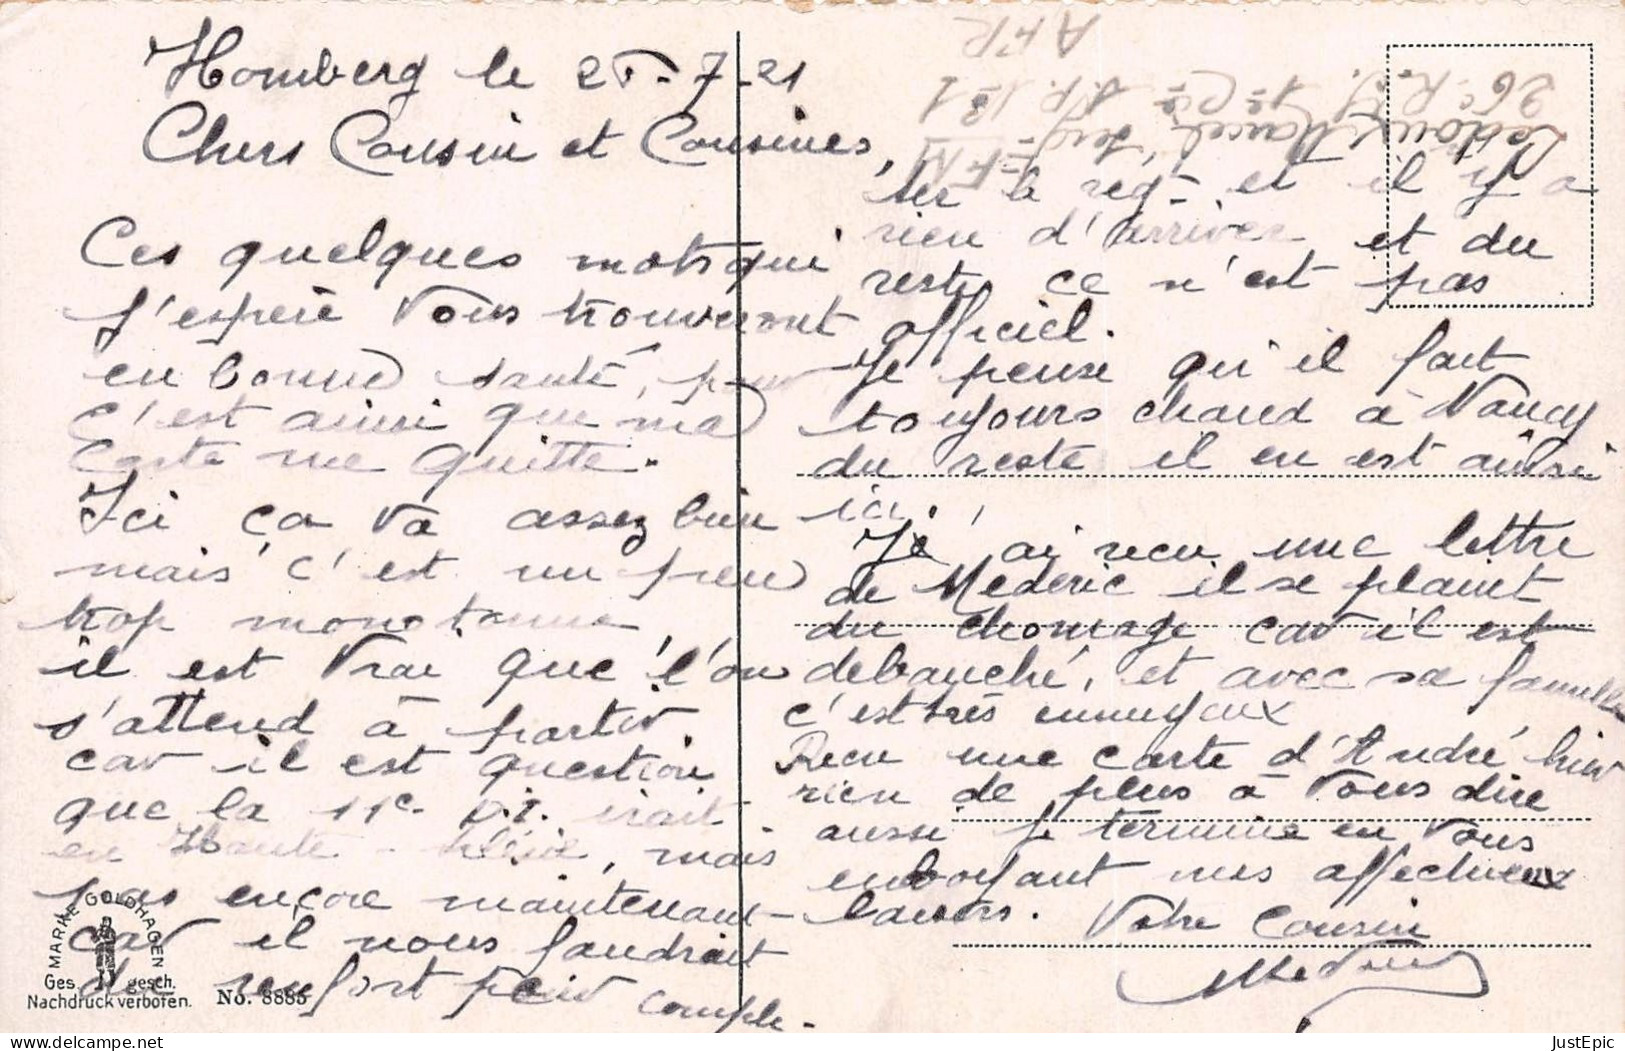 Homberg le 25-7-21
Chers Cousin et Cousines,
Ces quelques mots qui
j'espère Vous trouveront
en bonne santé, pour
c'est ainsi que ma
Carte me quitte.
Ici ça va assez bien
mais c'est un peu
trop monotonne
il est Vrai que l'on
s'attend à partir
car il est question
que la 11e D.I. irait
en Haute-Silésie, mais
pas encore maintenant
car il nous faudrait
du renfort pour comple-
ter le reg- et il y a
rien d'arriver et du
reste ce n'est pas
officiel.
Je pense qu'il fait
toujours chaud à Nancy
du reste il en est ainsi
ici.
Je ai recu une lettre
de Mederic il se plaint
du chomage car il est
debauché, et avec sa famille
c'est très ennuyeux
Recu une carte d'André hier
rien de plus à Vous dire
aussi je termine en Vous
envoyant mes affectueux
baisers. Votre Cousin
Marcel Serg-
26e R.I. 1e Cie S.P. 131
AFR
F.M
MARKE GOLDHAGEN
Ges. gesch.
Nachdruck verboten.
No. 8885
JustEpic